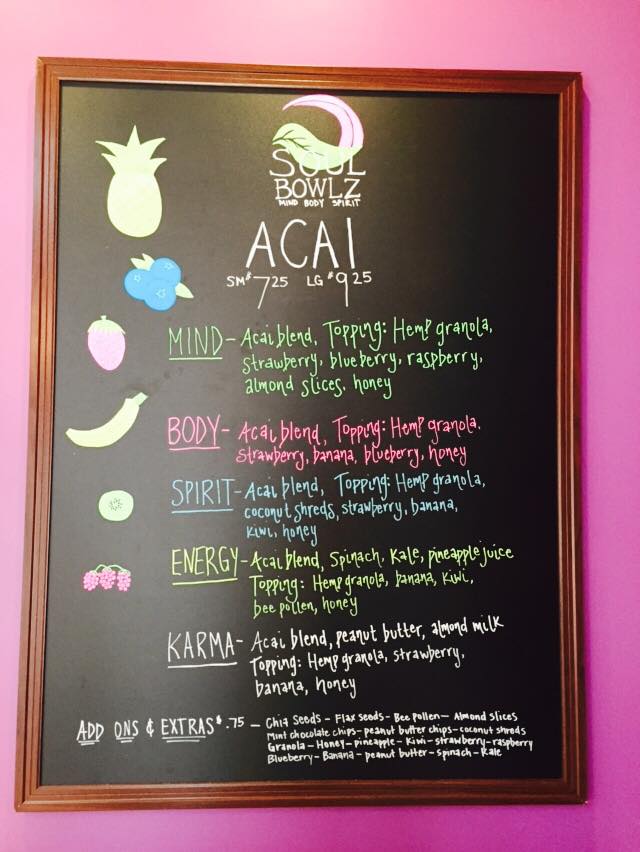 SOUL
BOWLZ
MIND BODY SPIRIT
ACAI
SM $7.25 LG $9.25
MIND - Acai blend, Topping: Hemp granola,
strawberry, blueberry, raspberry,
almond slices, honey
BODY - Acai blend, Topping: Hemp granola.
Strawberry, banana, blueberry, honey
SPIRIT - Acai blend, Topping: Hemp granola,
coconut shreds, strawberry, banana,
kiwi, honey
ENERGY - Acai blend, Spinach, Kale, pineapple juice
Topping: Hemp granola, banana, kiwi,
bee pollen, honey
KARMA - Acai blend, peanut butter, almond milk
Topping: Hemp granola, strawberry,
banana, honey
ADD ONS & EXTRAS $.75 - Chia Seeds - Flax seeds - Bee pollen - Almond slices
Mint chocolate chips - peanut butter chips - coconut shreds
Granola - Honey - pineapple - Kiwi - strawberry - raspberry
Blueberry - Banana - peanut butter - spinach - Kale